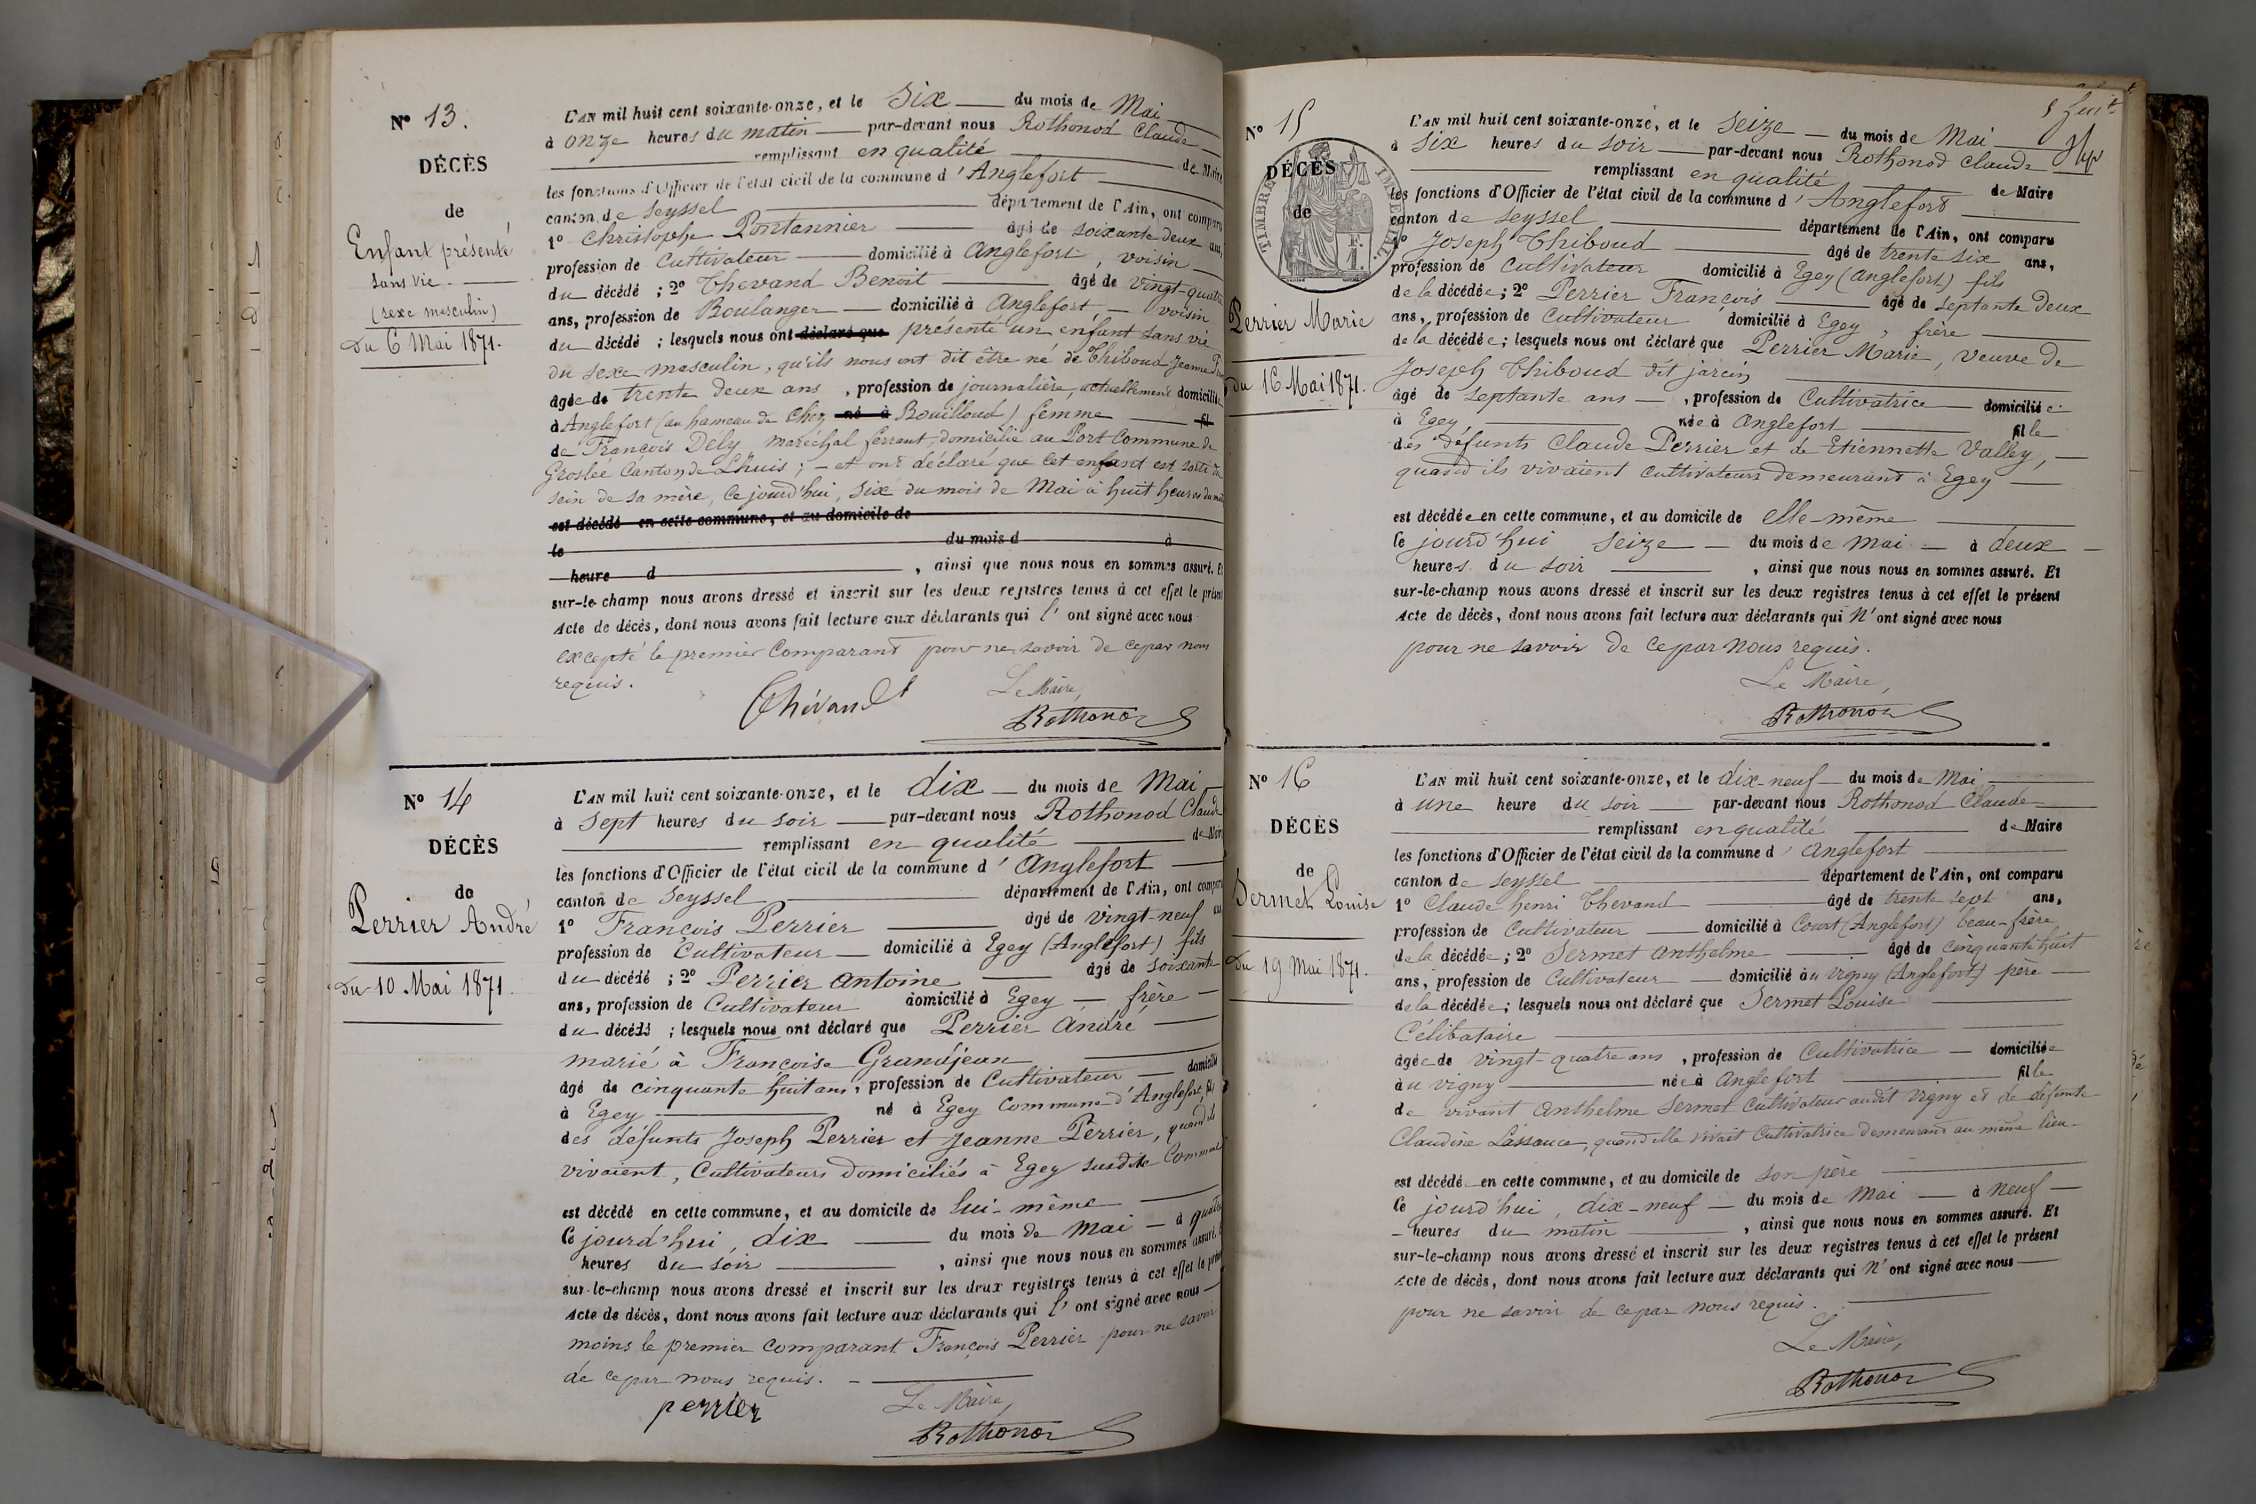 N° 13.
DÉCÈS
de
Enfant présenté
sans vie.
(sexe masculin)
Du 6 Mai 1871.
L'AN mil huit cent soixante-onze, et le Six du mois de Mai
à onze heures du matin par-devant nous Rothonod Claude
remplissant en qualité de Maire
les fonctions d'Officier de l'état civil de la commune d'Anglefort
canton de Seyssel département de l'Ain, ont comparu
1° Christophe Pontannier âgé de soixante deux ans,
profession de Cultivateur domicilié à Anglefort, voisin
du décédé ; 2° Thevand Benoit âgé de vingt-quatre
ans, profession de Boulanger domicilié à Anglefort, voisin
du décédé ; lesquels nous ont déclaré que présenté un enfant sans vie
du sexe masculin, qu'ils nous ont dit être né de Thiboud Jeanne
âgée de trente deux ans, profession de journalière, actuellement domiciliée
à Anglefort (au hameau de Chez né à Bouilloud) femme fil
de François Dely, maréchal ferrant, domicilié au Port Commune de
Groslée Canton de Lhuis ; - et ont déclaré que cet enfant est sorti du
sein de sa mère, ce jourd'hui, six du mois de Mai à huit heures du matin
est décédé en cette commune, et au domicile de
le du mois d à
heure d , ainsi que nous nous en sommes assuré. Et
sur-le-champ nous avons dressé et inscrit sur les deux registres tenus à cet effet le présent
Acte de décès, dont nous avons fait lecture aux déclarants qui l'ont signé avec nous
excepté le premier Comparant pour ne savoir de ce par nous
requis.
Le Maire,
Thévand
Rothonod
N° 14
DÉCÈS
de
Perrier André
Du 10 Mai 1871.
L'AN mil huit cent soixante-onze, et le dix du mois de Mai
à sept heures du soir par-devant nous Rothonod Claude
remplissant en qualité de Maire
les fonctions d'Officier de l'état civil de la commune d'Anglefort
canton de Seyssel département de l'Ain, ont comparu
1° François Perrier âgé de vingt-neuf ans
profession de Cultivateur domicilié à Egey (Anglefort) fils
du décédé ; 2° Perrier Antoine âgé de soixante
ans, profession de Cultivateur domicilié à Egey frère
du décédé ; lesquels nous ont déclaré que Perrier André
marié à Françoise Grandjean
âgé de cinquante huit ans, profession de Cultivateur domicilié
à Egey né à Egey Commune d'Anglefort, fils
des défunts Joseph Perrier et Jeanne Perrier, quand ils
vivaient, Cultivateurs domiciliés à Egey susdite Commune
est décédé en cette commune, et au domicile de lui-même
Ce jourd'hui, dix du mois de Mai à quatre
heures du soir , ainsi que nous nous en sommes assuré. Et
sur-le-champ nous avons dressé et inscrit sur les deux registres tenus à cet effet le présent
Acte de décès, dont nous avons fait lecture aux déclarants qui l'ont signé avec nous
moins le premier comparant François Perrier pour ne savoir
de ce par nous requis.
perrier
Le Maire,
Rothonod
N° 15
DÉCÈS
de
TIMBRE IMPÉRIAL
F.
1.
Perrier Marie
du 16 Mai 1871.
L'AN mil huit cent soixante-onze, et le Seize du mois de Mai
à Six heures du soir par-devant nous Rothonod Claude
remplissant en qualité de Maire
les fonctions d'Officier de l'état civil de la commune d'Anglefort
canton de Seyssel département de l'Ain, ont comparu
1° Joseph Thiboud âgé de trente six ans,
profession de Cultivateur domicilié à Egey (Anglefort) fils
de la décédée ; 2° Perrier François âgé de septante deux
ans, profession de Cultivateur domicilié à Egey, frère
de la décédée ; lesquels nous ont déclaré que Perrier Marie, veuve de
Joseph Thiboud dit
âgé de septante ans, profession de Cultivatrice domiciliée
à Egey née à Anglefort fille
des défunts Claude Perrier et de Etiennette Valley,
quand ils vivaient cultivateurs demeurant à Egey
est décédée en cette commune, et au domicile de elle-même
Ce jourd'hui seize du mois de Mai à deux
heures du soir , ainsi que nous nous en sommes assuré. Et
sur-le-champ nous avons dressé et inscrit sur les deux registres tenus à cet effet le présent
Acte de décès, dont nous avons fait lecture aux déclarants qui n'ont signé avec nous
pour ne savoir de ce par nous requis.
Le Maire,
Rothonod
N° 16
DÉCÈS
de
Sermet Louise
Du 19 Mai 1871.
L'AN mil huit cent soixante-onze, et le dix-neuf du mois de Mai
à une heure du soir par-devant nous Rothonod Claude
remplissant en qualité de Maire
les fonctions d'Officier de l'état civil de la commune d'Anglefort
canton de Seyssel département de l'Ain, ont comparu
1° Claude henri Thevand âgé de trente sept ans,
profession de Cultivateur domicilié à Court (Anglefort) beau-frère
de la décédée ; 2° Sermet Anthelme âgé de cinquante huit
ans, profession de Cultivateur domicilié au Vigny (Anglefort) père
de la décédée ; lesquels nous ont déclaré que Sermet Louise
Célibataire
âgée de vingt-quatre ans, profession de Cultivatrice domiciliée
au Vigny née à Anglefort fille
de vivant Anthelme Sermet Cultivateur audit Vigny et de défunte
Claudine Lassauce, quand elle vivait Cultivatrice demeurant au même lieu
est décédé en cette commune, et au domicile de son père
Ce jourd'hui, dix-neuf du mois de Mai à neuf
heures du matin , ainsi que nous nous en sommes assuré. Et
sur-le-champ nous avons dressé et inscrit sur les deux registres tenus à cet effet le présent
Acte de décès, dont nous avons fait lecture aux déclarants qui n'ont signé avec nous
pour ne savoir de ce par nous requis.
Le Maire,
Rothonod